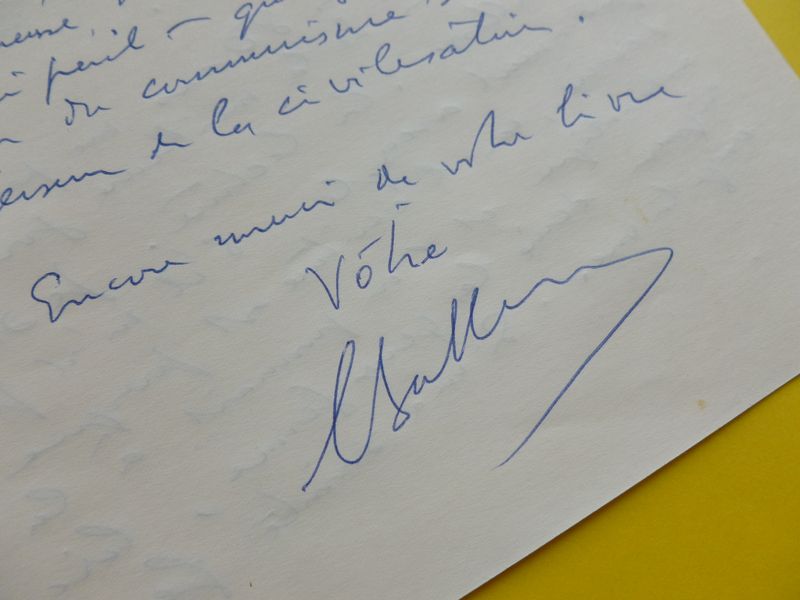 péril – qu
du communisme
de la civilisation.
Encore merci de votre livre
Vôtre